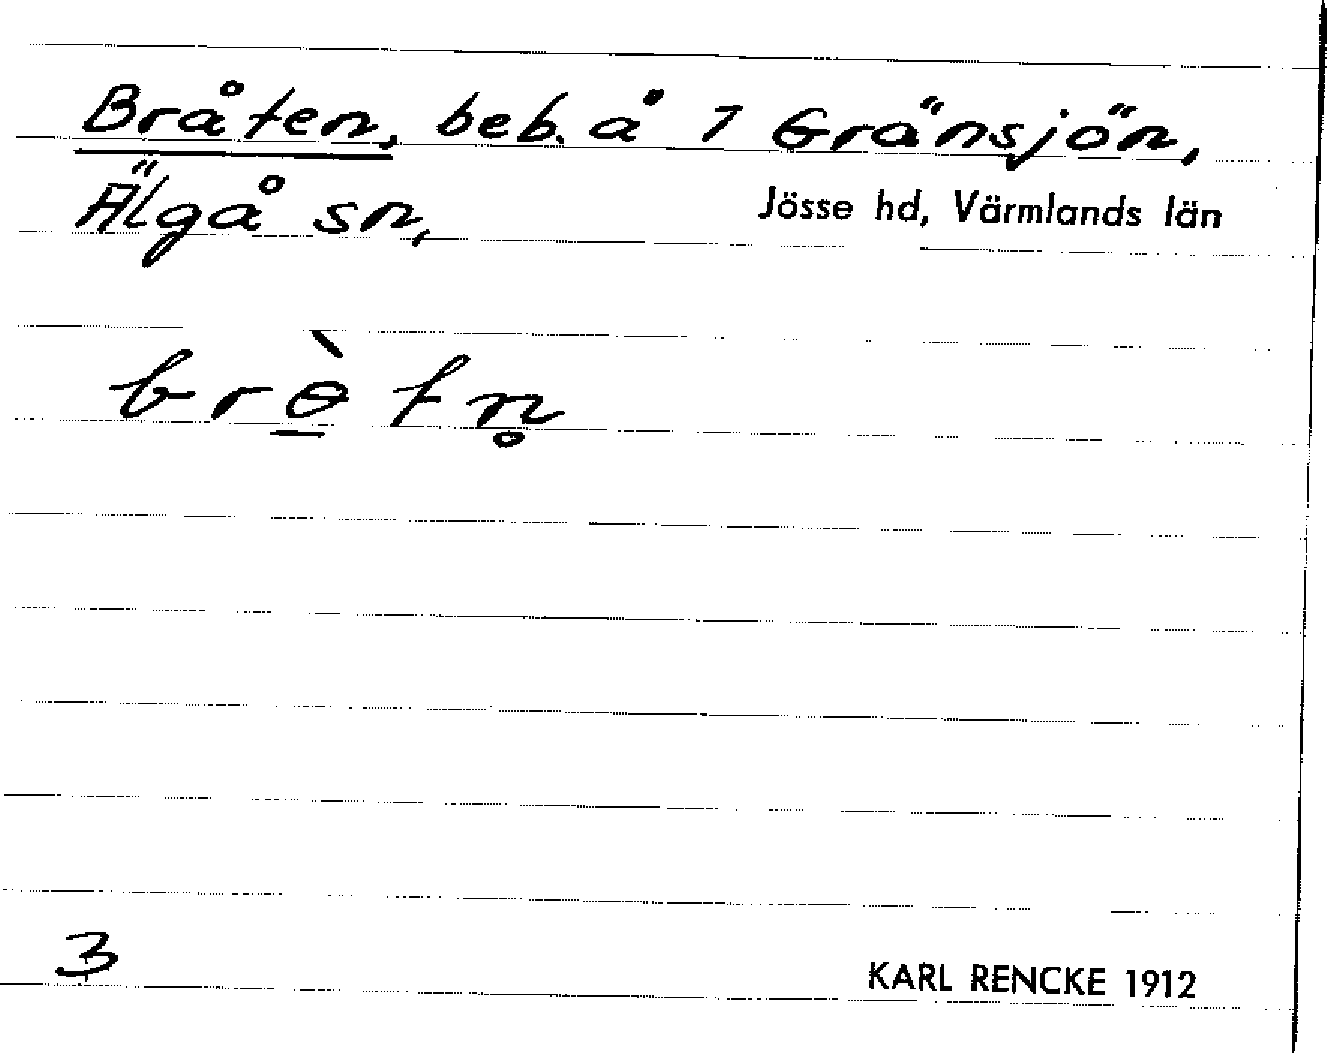 Bråten, beb. å 1 Gränsjön,
Älgå sn, Jösse hd, Värmlands län
brɵ̱̀tn̥
3 KARL RENCKE 1912